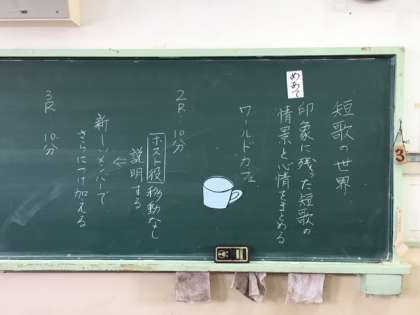 短歌の世界
めあて
印象に残った短歌の
情景と心情をまとめる
ワールドカフェ
2R 10分
ホスト役移動なし
説明する
⇐
新しいメンバーで
さらにつけ加える
3R 10分
3